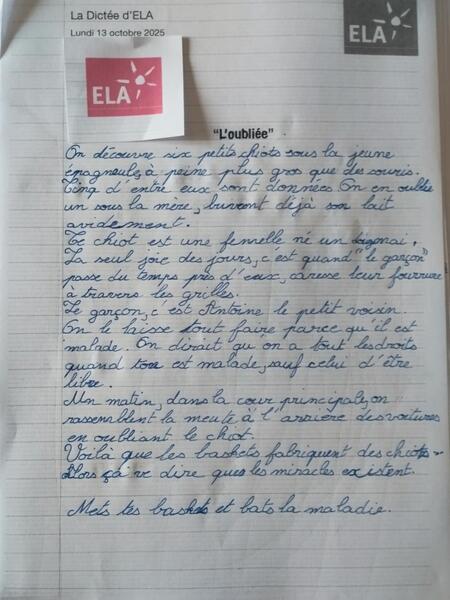 La Dictée d'ELA
Lundi 13 octobre 2025
ELA
ELA
"L'oubliée"
On découvre six petits chiots sous la jeune
épagneule, à peine plus gros que des souris.
Cinq d'entre eux sont données. On en oublie
un sous la mère, buvant déjà son lait
avidement.
Le chiot est une femelle né un
La seul joie des jours, c'est quand "le garçon"
passe du temps près d'eux, caresse leur fourrure
à travers les grilles.
Le garçon, c'est Antoine le petit voisin.
On le laisse tout faire parce qu'il est
malade. On dirait qu'on a tout les droits
quand ton est malade, sauf celui d'être
libre.
Un matin, dans la cour principale, on
rassemblent la meute à l'arrière des voitures
en oubliant le chiot.
Voilà que les baskets fabriquent des chiots
Alors ça ve dire que les miracles existent.
Mets tes baskets et bats la maladie.